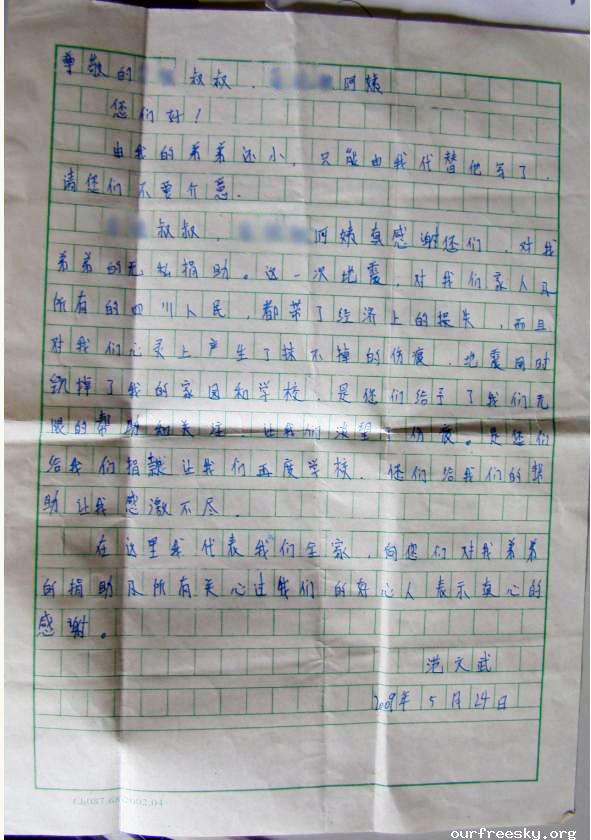 尊敬的 叔叔、 阿姨
您们好！
由我的弟弟还小，只能由我代替他写了，
请您们不要介意。
叔叔、 阿姨真感谢您们，对我
弟弟的无私捐助。这一次地震，对我们家人及
所有的四川人民，都带了经济上的损失，而且
对我们心灵上产生了抹不掉的伤痕，地震同时
毁掉了我的家园和学校，是您们给予了我们无
限的帮助和关注，让我们淡望了伤痕。是您们
给我们捐款让我们再度学校，您们给我们的帮
助让我感激不尽。
在这里我代表我们全家，向您们对我弟弟
的捐助及所有关心过我们的好心人表示真心的
感谢。
范文武
2009年5月24日
ourfreesky.org